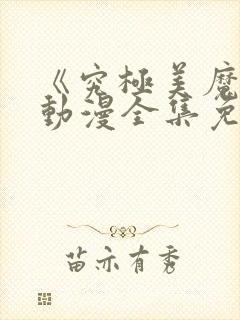 《究极美魔
动漫全集免
苗亦有秀